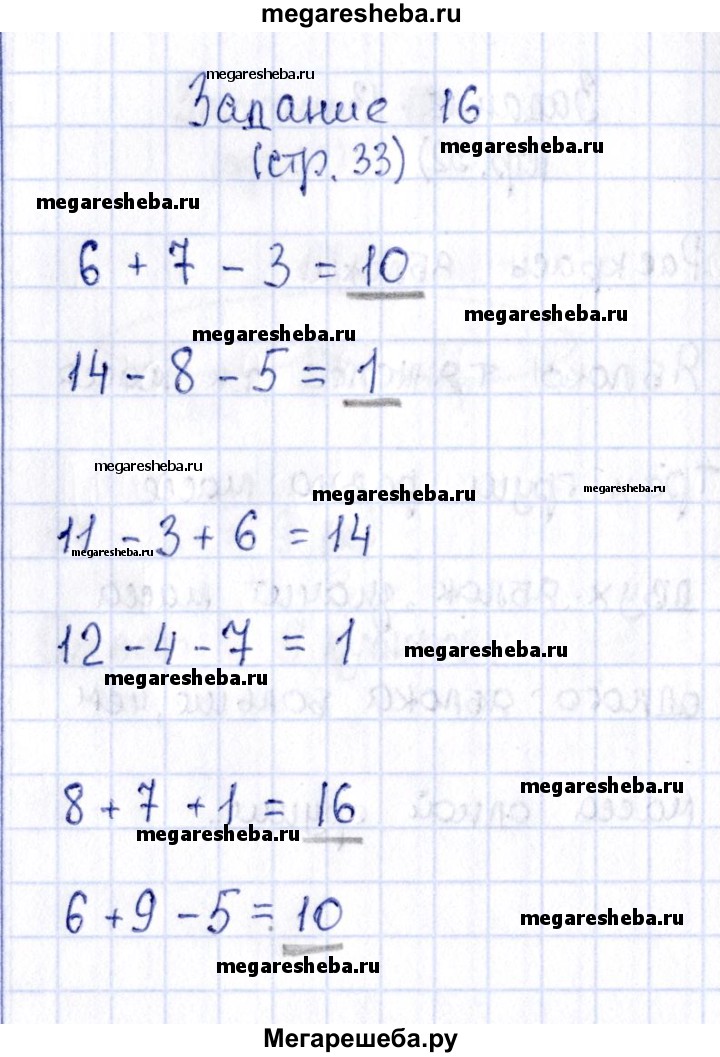 megaresheba.ru
megaresheba.ru
Задание 16
megaresheba.ru
(стр. 33)
megaresheba.ru
6 + 7 - 3 = 10
megaresheba.ru
megaresheba.ru
14 - 8 - 5 = 1
megaresheba.ru
megaresheba.ru
megaresheba.ru
11 - 3 + 6 = 14
megaresheba.ru
12 - 4 - 7 = 1
megaresheba.ru
megaresheba.ru
8 + 7 + 1 = 16
megaresheba.ru
megaresheba.ru
6 + 9 - 5 = 10
megaresheba.ru
megaresheba.ru
Мегарешеба.ру